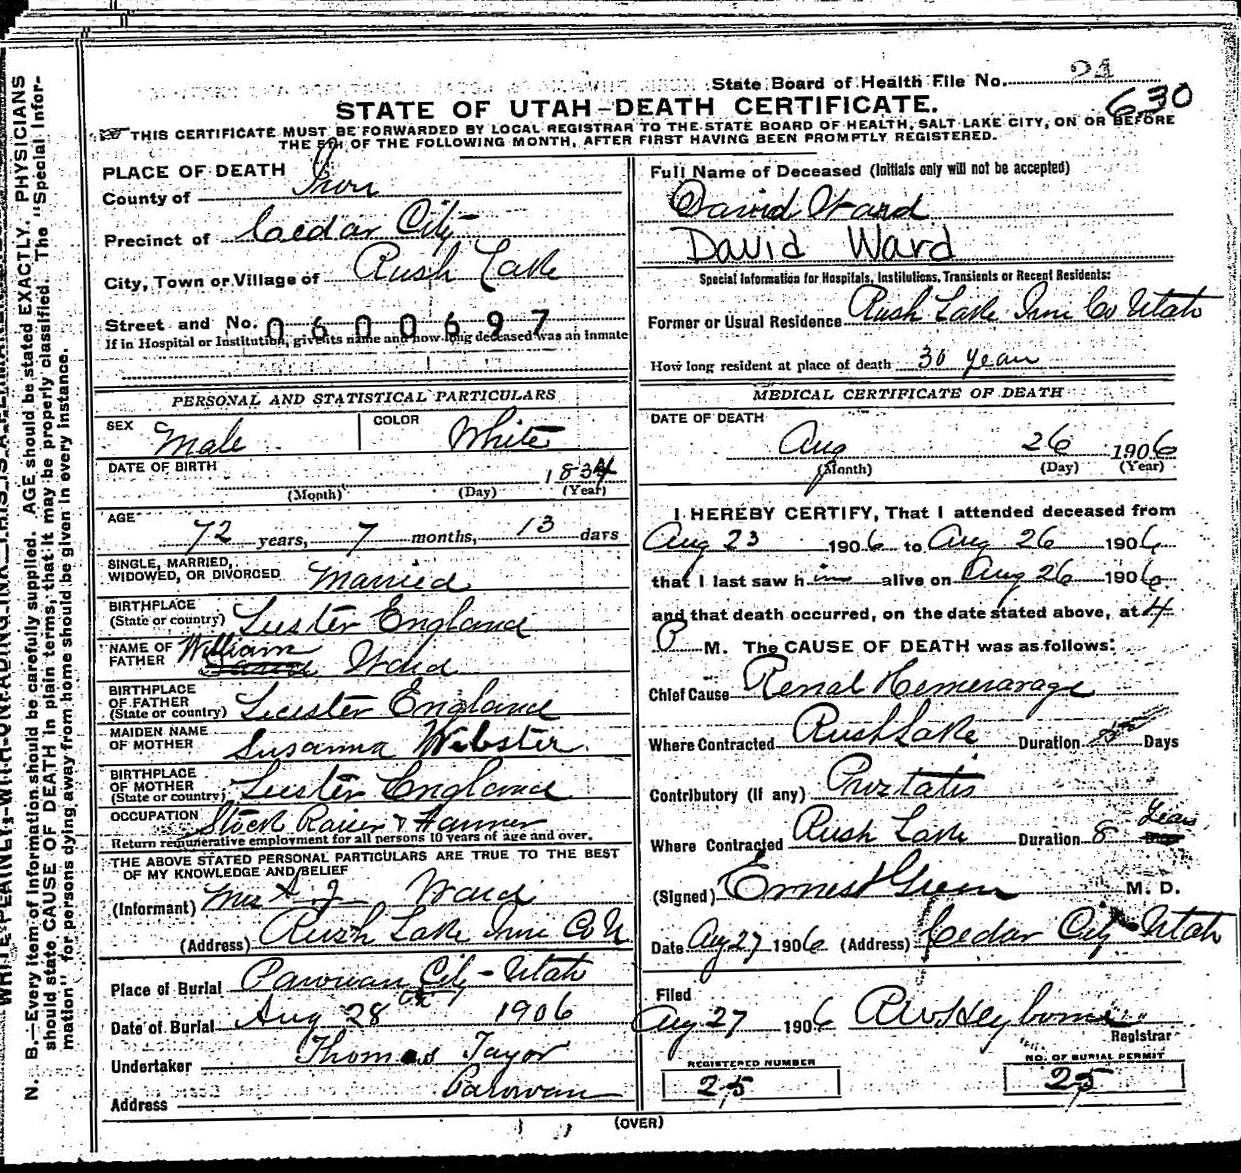 State Board of Health File No. 24
630
STATE OF UTAH-DEATH CERTIFICATE.
THIS CERTIFICATE MUST BE FORWARDED BY LOCAL REGISTRAR TO THE STATE BOARD OF HEALTH, SALT LAKE CITY, ON OR BEFORE
THE 5TH OF THE FOLLOWING MONTH, AFTER FIRST HAVING BEEN PROMPTLY REGISTERED.
PLACE OF DEATH
County of Iron
Precinct of Cedar City
City, Town or Village of Rush Lake
Street and No. 0600697
If in Hospital or Institution, give its name and how long deceased was an inmate
PERSONAL AND STATISTICAL PARTICULARS
SEX Male COLOR White
DATE OF BIRTH 1834
(Month) (Day) (Year)
AGE 72 years, 7 months, 13 days
SINGLE, MARRIED,
WIDOWED, OR DIVORCED Married
BIRTHPLACE
(State or country) Lester England
NAME OF
FATHER William Ward
BIRTHPLACE
OF FATHER
(State or country) Leester England
MAIDEN NAME
OF MOTHER Susanna Webster
BIRTHPLACE
OF MOTHER
(State or country) Lester England
OCCUPATION Stock Raiser & Farmer
Return remunerative employment for all persons 10 years of age and over.
THE ABOVE STATED PERSONAL PARTICULARS ARE TRUE TO THE BEST
OF MY KNOWLEDGE AND BELIEF
(Informant) Mrs A. J. Ward
(Address) Rush Lake Iron Co U
Place of Burial Parowan City - Utah
Date of Burial Aug 28th 1906
Undertaker Thomas Tayor
Address Parowan
Full Name of Deceased (Initials only will not be accepted)
David Ward
David Ward
Special Information for Hospitals, Institutions, Transients or Recent Residents:
Former or Usual Residence Rush Lake Iron Co Utah
How long resident at place of death 30 year
MEDICAL CERTIFICATE OF DEATH
DATE OF DEATH
Aug 26 1906
(Month) (Day) (Year)
I HEREBY CERTIFY, That I attended deceased from
Aug 23 1906 to Aug 26 1906
that I last saw him alive on Aug 26 1906
and that death occurred, on the date stated above, at 4
P M. The CAUSE OF DEATH was as follows:
Chief Cause Renal Hemerarage
Where Contracted Rush Lake Duration Days
Contributory (if any) Proztatis
Where Contracted Rush Lake Duration 8 Years
(Signed) Ernest Green M. D.
Date Aug 27 1906 (Address) Cedar City - Utah
Filed
Aug 27 1906 R W Heyborne
Registrar
REGISTERED NUMBER
25
NO. OF BURIAL PERMIT
25
(OVER)
WRITE PLAINLY, WITH UNFADING INK—THIS IS A PERMANENT RECORD
N. B.—Every item of Information should be carefully supplied. AGE should be stated EXACTLY. PHYSICIANS
should state CAUSE OF DEATH in plain terms, that it may be properly classified. The "Special Infor-
mation" for persons dying away from home should be given in every instance.